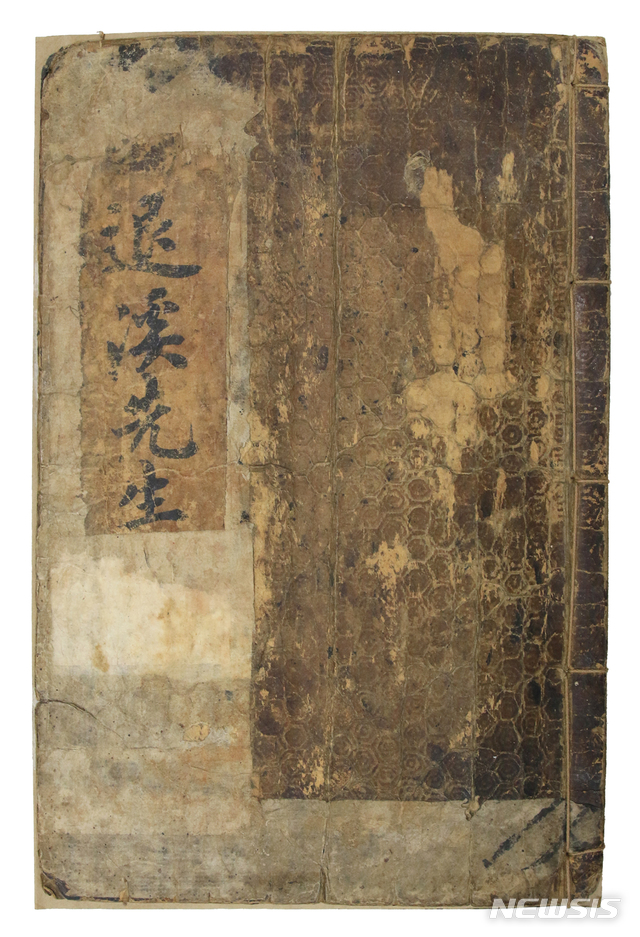 退溪先生
NEWSIS